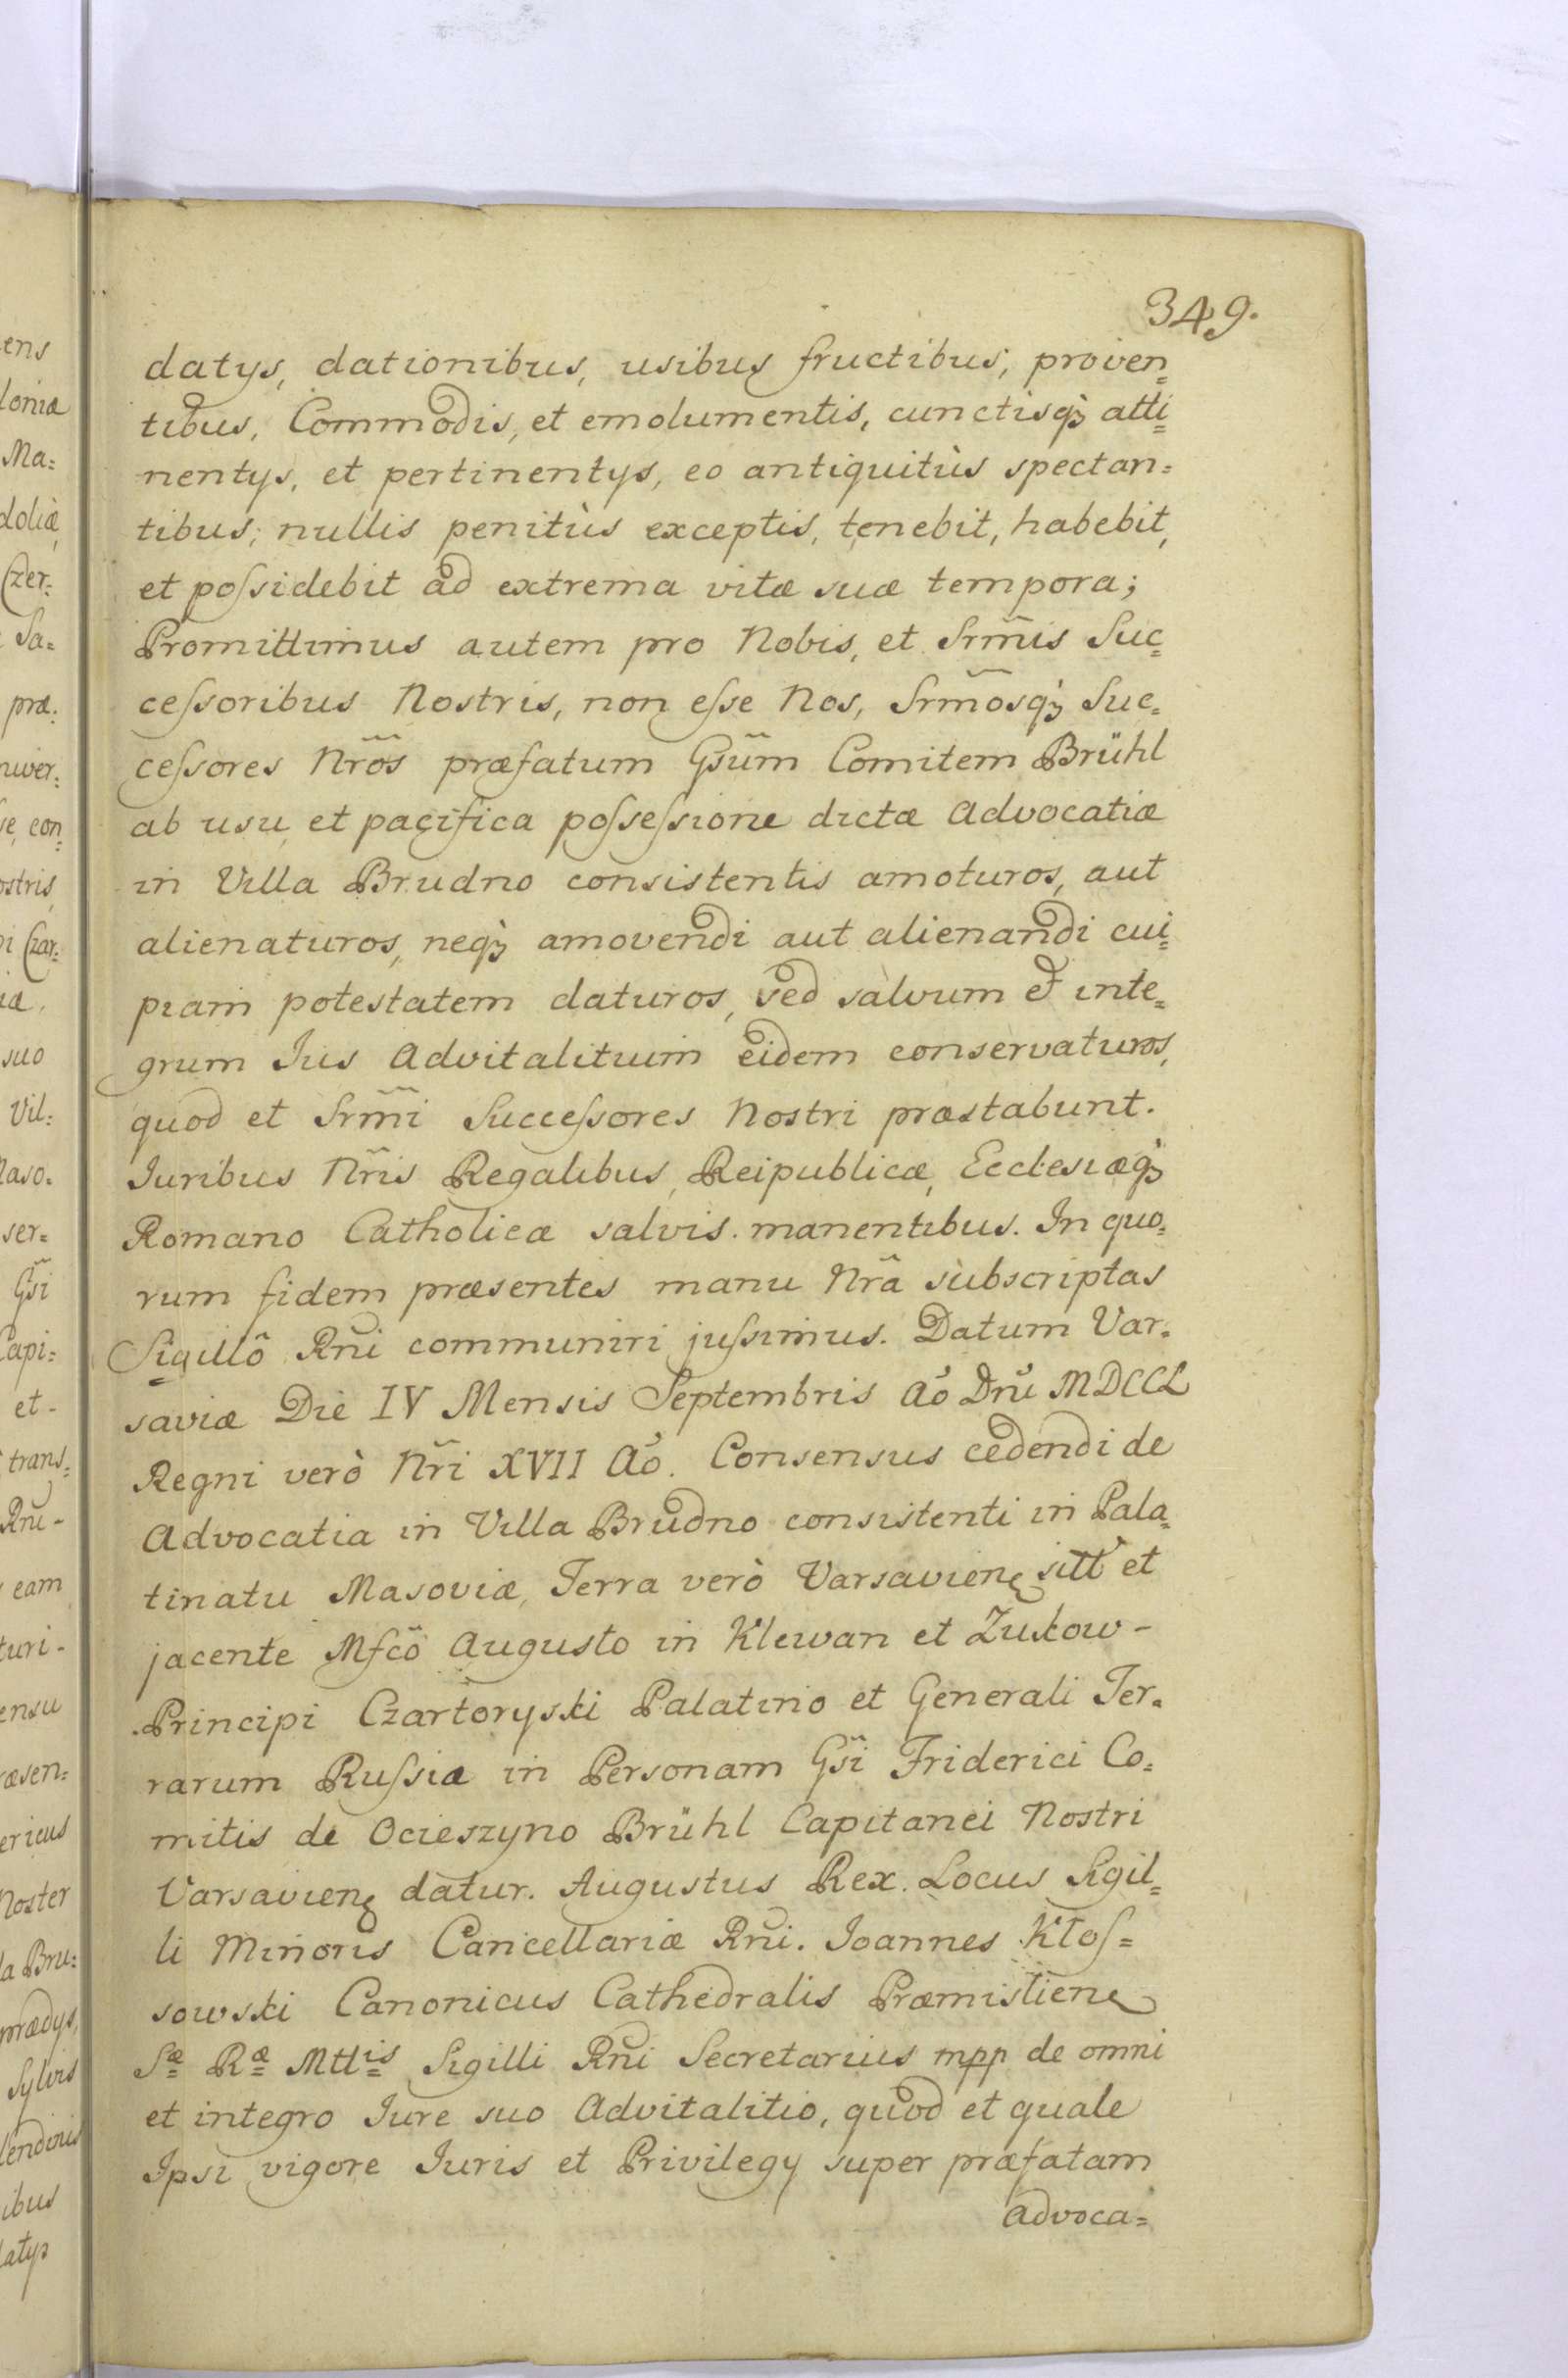 349.
datys, dationibus, usibus fructibus, proven=
tibus, Commodis, et emolumentis, cunctisq3 atti=
nentys, et pertinentys, eo antiquitùs spectan=
tibus, nullis penitùs exceptis, tenebit, habebit,
et poſsidebit ad extrema vitæ suæ tempora;
Promittimus autem pro Nobis, et Srm̃is Suc=
ceſsoribus Nostris, non eſse Nos, Srm̃osq3 Suc=
ceſsores Nr̃os præfatum Gsũm Comitem Brühl
ab usu et pacifica poſseſsione dictæ Advocatiæ
in Villa Brudno consistentis amoturos, aut
alienaturos, neq3 amovendi aut alienandi cui=
piam potestatem daturos, sed salvum et inte=
grum Jus Advitalitium eidem conservaturos,
quod et Srm̃i Succeſsores Nostri præstabunt.
Juribus Nr̃is Regalibus, Reipublicæ, Ecclesiæq3
Romano Catholicæ salvis manentibus. In quo=
rum fidem præsentes manu Nrâ subscriptas
Sigillô Rñi communiri juſsimus. Datum Var=
saviæ Die IV Mensis Septembris Aõ Dñi MDCCL
Regni verò Nr̃i XVII Aõ. Consensus cedendi de
Advocatia in Villa Brudno consistenti in Pala=
tinatu Masoviæ, Terra verò Varsavien̄ sitt̃ et
jacente Mfcõ Augusto in Klewan et Zukow-
Principi Czartoryski Palatino et Generali Ter=
rarum Ruſsiæ in Personam Gsĩ Friderici Co=
mitis de Ocieszyno Brühl Capitanei Nostri
Varsavien̄ datur. Augustus Rex. Locus Sigil=
li Minoris Cancellariæ Rñi. Joannes Kłoſ=
sowski Canonicus Cathedralis Præmislien̄
Sæ Ræ Mttis Sigilli Rñi Secretarius mpp de omni
et integro Jure suo Advitalitio, quod et quale
Ipsi vigore Juris et Privilegy super præfatam
Advoca=